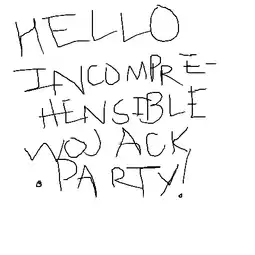 HELLO
INCOMPRE-
HENSIBLE
WOJACK
. PARTY!